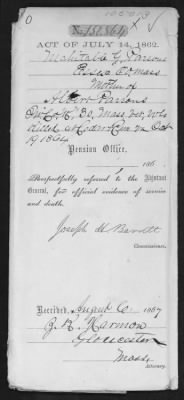 No. 151,864
ACT OF JULY 14, 1862.
Mehitable G. Parsons
Mass
Mother of
Albert Parsons
30, Mass Vet. Vols
Cedar Creek Va Oct
19 1864
Pension Office,
186 .
Respectfully referred to the Adjutant
General, for official evidence of service
and death.
Joseph H Barrett
Commissioner.
Received, August 6, 1867
G. R. Harmon
Gloucester
Mass.
Attorney.